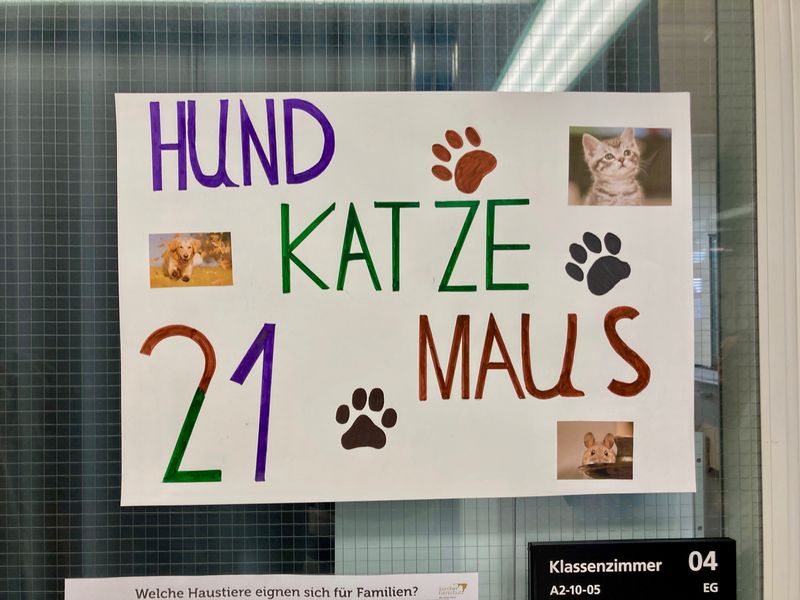 HUND
KATZE
21 MAUS
Klassenzimmer 04
A2-10-05 EG
Welche Haustiere eignen sich für Familien?